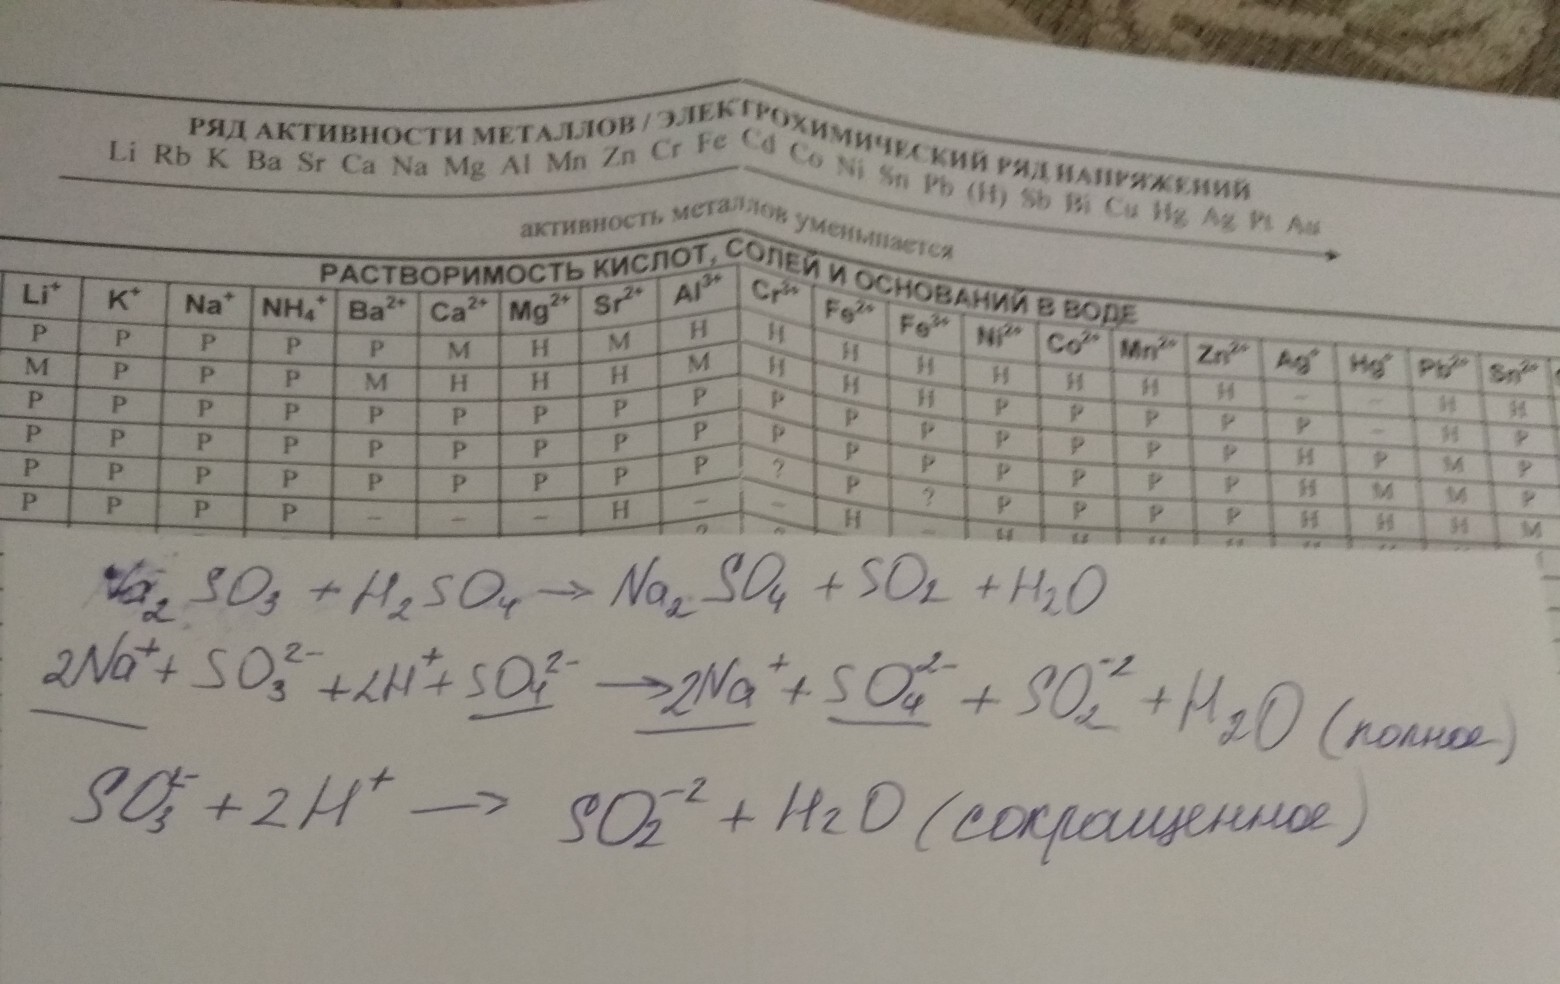 РЯД АКТИВНОСТИ МЕТАЛЛОВ / ЭЛЕКТРОХИМИЧЕСКИЙ РЯД НАПРЯЖЕНИЙ
Li Rb K Ba Sr Ca Na Mg Al Mn Zn Cr Fe Cd Co Ni Sn Pb (H) Sb Bi Cu Hg Ag Pt Au
активность металлов уменьшается
РАСТВОРИМОСТЬ КИСЛОТ, СОЛЕЙ И ОСНОВАНИЙ В ВОДЕ
Li⁺ K⁺ Na⁺ NH₄⁺ Ba²⁺ Ca²⁺ Mg²⁺ Sr²⁺ Al³⁺ Cr³⁺ Fe²⁺ Fe³⁺ Ni²⁺ Co²⁺ Mn²⁺ Zn²⁺ Ag⁺ Hg⁺ Pb²⁺ Sn²⁺
Р Р Р Р Р М Н М Н Н Н Н Н Н Н Н – – Н Н
М Р Р Р М Н Н Н М Н Н Н Р Р Р Р Р – Н Р
Р Р Р Р Р Р Р Р Р Р Р Р Р Р Р Р Н Р М Р
Р Р Р Р Р Р Р Р Р Р Р Р Р Р Р Р Н М М Р
Р Р Р Р Р Р Р Р Р ? Р ? Р Р Р Р Н Н Н М
Р Р Р Р – – – Н – – Н –
Na₂SO₃ + H₂SO₄ → Na₂SO₄ + SO₂ + H₂O
2Na⁺ + SO₃²⁻ + 2H⁺ + SO₄²⁻ → 2Na⁺ + SO₄²⁻ + SO₂⁻² + H₂O (полное)
SO₃ + 2H⁺ → SO₂⁻² + H₂O (сокращенное)